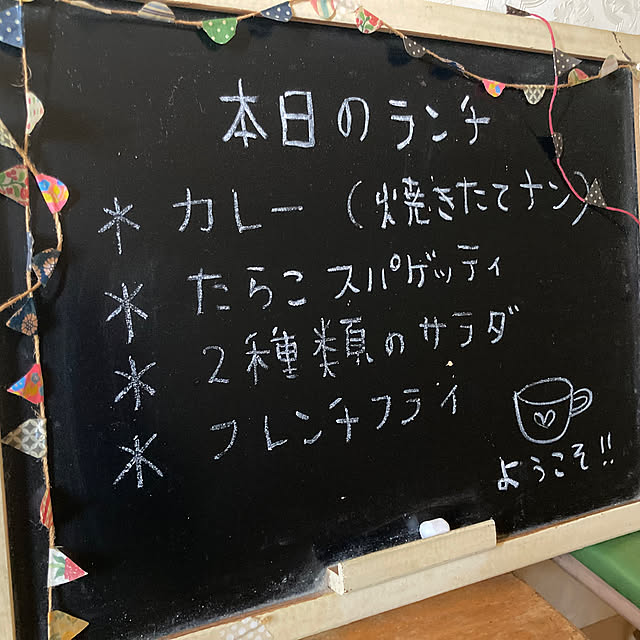 本日のランチ
* カレー (焼きたてナン)
* たらこスパゲッティ
* 2種類のサラダ
* フレンチフライ
ようこそ!!